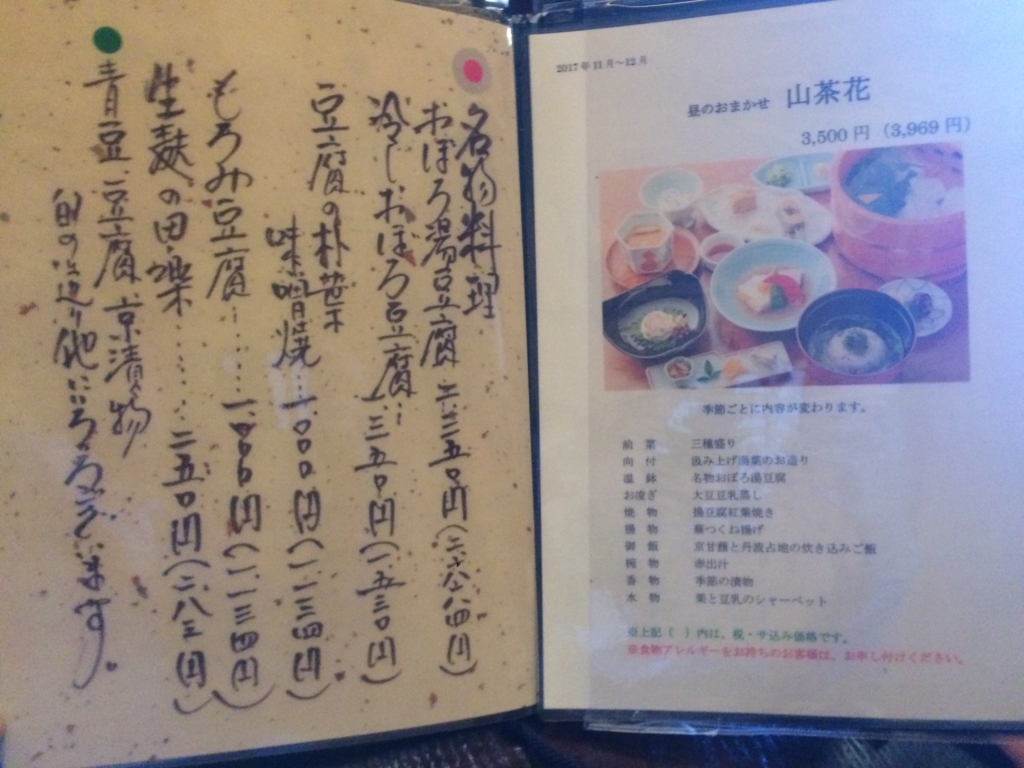 名物料理
おぼろ湯豆腐
冷しおぼろ豆腐…一.三五〇円(一.五三〇円)
豆腐の朴葉
味噌焼…一.〇〇〇円(一.一三四円)
もろみ豆腐……一.〇〇〇円(一.一三四円)
生麩の田楽……二五〇円(二八三円)
青豆豆腐 京漬物
2017年11月~12月
昼のおまかせ 山茶花
3,500円(3,969円)
季節ごとに内容が変わります。
前菜 三種盛り
向付 汲み上げ湯葉のお造り
温鉢 名物おぼろ湯豆腐
お凌ぎ 大豆豆乳蒸し
焼物 揚豆腐紅葉焼き
揚物 蕪つくね揚げ
御飯 京甘麺と丹波占地の炊き込みご飯
椀物 赤出汁
香物 季節の漬物
水物 栗と豆乳のシャーベット
※上記( )内は、税・サ込み価格です。
※食物アレルギーをお持ちのお客様は、お申し付けください。